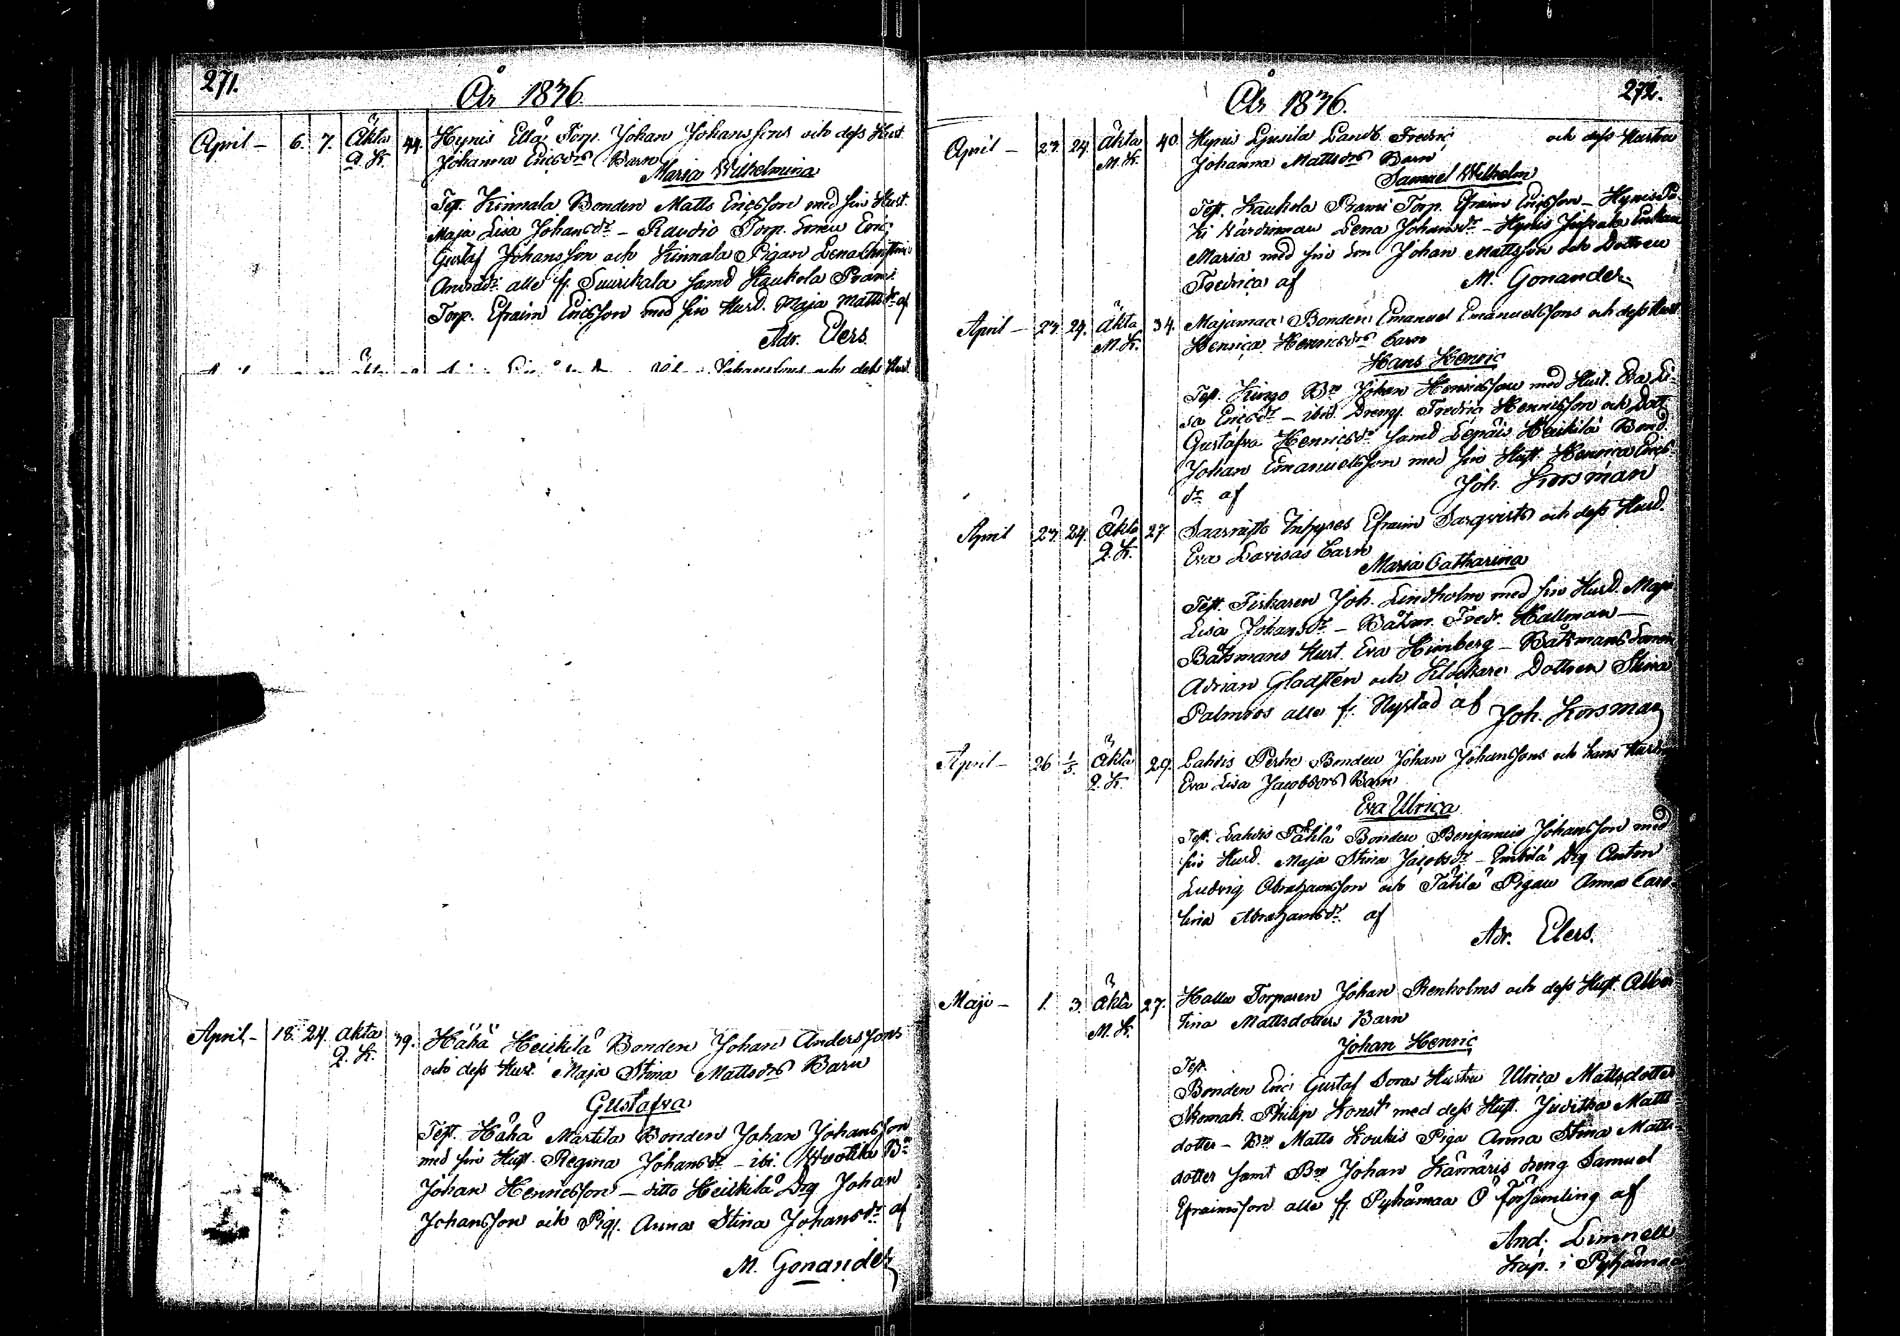 271.
År 1836
April – 6. 7. Äkta 44. Hynis Ella Torp. Johan Johanssons och dess Hust.
Q. K. Johanna Ericsdrs Barn
Maria Wilhelmina
Test. Kinnala Bonden Matts Ericsson med sin Hust.
Maja Lisa Johansdr – Raudio Torp. Sonen Eric
Gustaf Johansson och Kinnala Pigan Lena
alle fr. Suurikala samt Kaukola Prami
Torp. Efraim Ericsson med sin Hust. Maja Mattsdr af
Adr. Elers.
April – 18. 24. Äkta 39. Hähä Heickilä Bonden Johan Anderssons
Q. K. och dess Hust. Maja Stina Mattsdrs Barn
Gustafva
Test. Hähä Märtila Bonden Johan Johansson
med sin Hust. Regina Johansdr – ibi.
Johan Henricsson – ditto Heickilä Drg Johan
Johansson och Pig. Anna Stina Johansdr af
M. Gonander
272.
År 1836.
April – 23. 24. Äkta 40. Hynis Ljusila Landb. Fredric och dess Hustru
M. K. Johanna Mattsdrs Barn
Samuel Wilhelm
Test. Kaukola Prami Torp. Efraim Ericsson – Hynis
Lena Johansdr – Hynis Enkan
Maria med sin Son Johan Mattsson och Dottren
Fredrica af M. Gonander
April – 23. 24. Äkta 34. Majamaa Bonden Emanuel Emanuelssons och dess Hust.
M. K. Henrica Henricsdrs Barn
Hans Henric
Test. Kingo Bn Johan Henricsson med Hust. Eva Li-
sa Ericsdr – ibid. Dreng. Fredric Henricsson och Dott.
Gustafva Henricsdr samt Lepäis Heickilä Bond.
Johan Emanuelsson med sin Hust. Henrica Erics-
dr af Joh. Korsman
April 23. 24. Äkta 27. Efraim och dess Hust.
Q. K. Eva Lovisas Barn
Maria Catharina
Test. Fiskaren Joh. Lindholm med sin Hust. Maja
Lisa Johansdr – Båtsm. Fredr. Hallman –
Båtsmans Hust. Eva Himberg – Båtsmans Sonen
Adrian Gladsten och Klockare Dottren Stina
Palmroos alle fr. Nystad af Joh. Korsman
April – 26 1/5. Äkta 29. Lahdis Perho Bonden Johan Johanssons och hans Hustru
Q. K. Eva Lisa Jacobsdrs Barn
Eva Ulrica
Test. Lahdis Tähtilä Bonden Benjamin Johansson med
sin Hust. Maja Stina Jacobsdr – Drg Anton
Ludvig Abrahamsson och Tähtilä Pigan Anna Caro-
lina Abrahamsdr af
Adr. Elers.
Maji – 1. 3. Äkta 27. Halla Torparen Johan Renholms och dess Hust. Alber
M. K. tina Mattsdotters Barn
Johan Henric
Test.
Bonden Eric Gustaf Sora Hustru Ulrica Mattsdotter
Skomak. Philip Konst med dess Hust. Juditha Matts-
dotter – Bn Matts Koukis Piga Anna Stina Matts-
dotter samt Bn Johan Kämäris dreng Samuel
Efraimsson alle fr. Pyhämaa Ö församling af
And. Limnell
Kap. i Pyhämaa